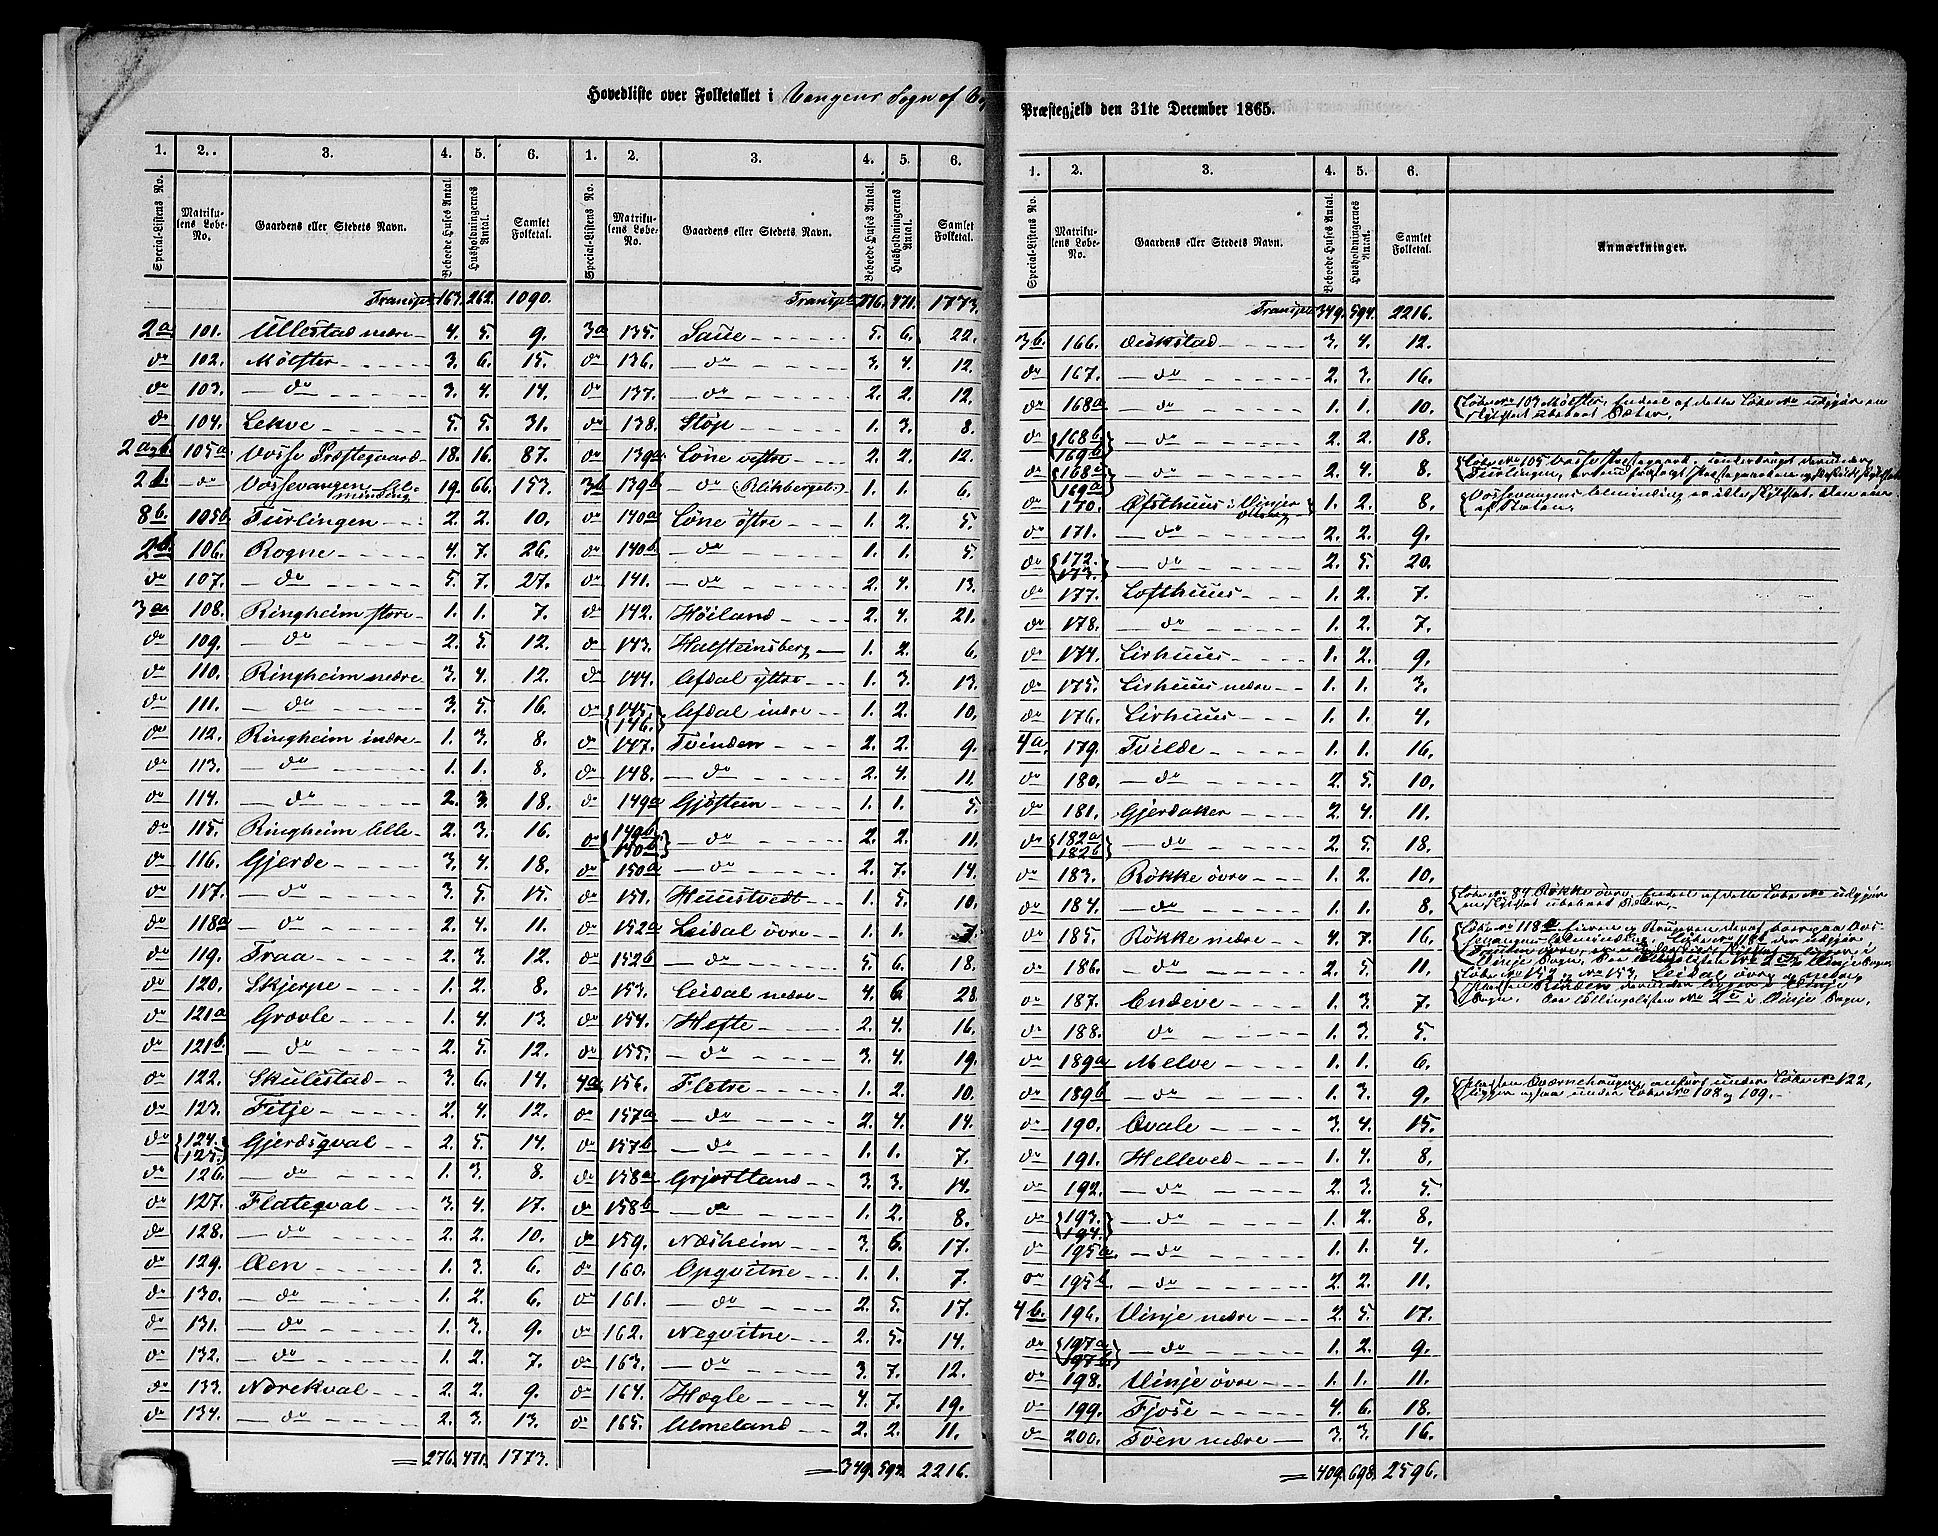 Hovedliste over Folketallet i Vangens Sogn af
Præstegjeld den 31te December 1865.
1. 2. 3. 4. 5. 6. 1. 2. 3. 4. 5. 6.
Special-Listens No. Matrikulens Løbe-No. Gaardens eller Stedets Navn. Beboede Huses Antal. Husholdningernes Antal. Samlet Folketal. Special-Listens No. Matrikulens Løbe-No. Gaardens eller Stedets Navn. Beboede Huses Antal. Husholdningernes Antal. Samlet Folketal.
Transpt 262. 1090. Transpt 276. 471. 1773.
2a 101. Ullestad nedre 4. 5. 9. 3a 135. Saue 5. 6. 22.
do 102. Mølster 3. 6. 15. do 136. do 3. 4. 12.
do 103. do 3. 4. 14. do 137. do 2. 2. 12.
do 104. Lekve 5. 5. 31. do 138. Støp 1. 3. 8.
2a&b 105a Vosse Præstegaard 18. 16. 87. do 139a Löne vestre 2. 2. 12.
2b do Vossevangen Alminding 19. 66. 153. 3b 139b do 1. 1. 6.
8b 105b Turlingen 2. 2. 10. do 140a Löne östre 1. 2. 5.
2b 106. Rogne 4. 7. 26. do 140b do 1. 1. 5.
do 107. do 5. 7. 27. do 141. do 2. 4. 13.
3a 108. Ringheim store 1. 1. 7. do 142. Höiland 2. 4. 21.
do 109. do 2. 5. 12. do 143. Halsteinsberg 1. 2. 6.
do 110. Ringheim nedre 3. 4. 12. do 144. Afdal yttre 1. 3. 13.
do 111. do 3. 5. 16. do 145. 146. Afdal indre 1. 2. 10.
do 112. Ringheim indre 1. 3. 8. do 147. Tvinden 2. 2. 9.
do 113. do 1. 1. 8. do 148. do 2. 4. 11.
do 114. do 2. 3. 18. do 149a Gjøstein 1. 1. 5.
do 115. Ringheim lille 2. 3. 16. do 149b 150b do 2. 2. 11.
do 116. Gjerde 3. 4. 18. do 150a do 2. 7. 14.
do 117. do 3. 5. 15. do 151. Huustvedt 1. 5. 10.
do 118a do 2. 4. 11. do 152a Leidal övre 1. 1. 7.
do 119. Traa 2. 3. 12. do 152b do 5. 6. 18.
do 120. Skjerpe 1. 2. 8. do 153. Leidal nedre 4. 6. 28.
do 121a Grovle 1. 4. 13. do 154. Hefte 2. 4. 16.
do 121b do 2. 5. 12. do 155. do 3. 4. 19.
do 122. Skulestad 3. 6. 14. 4a 156. Fletre 1. 2. 10.
do 123. Fitje 2. 4. 12. do 157a do 2. 4. 14.
do 124. 125. Gjerdsqval 2. 5. 14. do 157b do 1. 1. 7.
do 126. do 1. 3. 8. do 158a Grjotland 3. 3. 14.
do 127. Flateqval 3. 4. 17. do 158b do 1. 2. 8.
do 128. do 2. 2. 10. do 159. Næsheim 3. 6. 17.
do 129. Øen 1. 3. 6. do 160. Opqvitne 1. 1. 7.
do 130. do 1. 2. 6. do 161. do 2. 5. 17.
do 131. do 1. 3. 9. do 162. Neqvitne 2. 5. 14.
do 132. do 1. 2. 7. do 163. do 3. 7. 12.
do 133. Norekval 2. 2. 9. do 164. Hægle 4. 7. 19.
do 134. do 2. 3. 13. do 165. Almeland 2. 2. 11.
276. 471. 1773. 349. 594. 2216.
1. 2. 3. 4. 5. 6.
Special-Listens No. Matrikulens Løbe-No. Gaardens eller Stedets Navn. Beboede Huses Antal. Husholdningernes Antal. Samlet Folketal. Anmærkninger.
Transpt 349. 594. 2216.
3b. 166. Dukstad 3. 4. 12.
do 167. do 2. 3. 16.
do 168a do 1. 1. 10. Løbe No 103 Mølster, Endeel af dette Løbe No udgjør en
skyldsat ubeboet Sæter.
do 168b 169b do 2. 2. 18.
do 168a 169a do 2. 4. 8. Løbe No 105 Vosse Præstegaard,
do 170. Øfsthuus i Vinje 1. 2. 8. Vossevangens Alminding er ikke skyldsat
do 171. do 2. 2. 9.
do 172. 173. do 2. 5. 20.
do 177. Lofthuus 1. 2. 7.
do 178. do 1. 2. 7.
do 174. Lirhuus 1. 2. 9.
do 175. Lirhuus nedre 1. 1. 3.
do 176. Lirhuus 1. 1. 4.
4a. 179. Tvilde 1. 1. 16.
do 180. do 2. 5. 10.
do 181. Gjerdaker 2. 4. 11.
do 182a 182b do 2. 5. 18.
do 183. Røkke övre 1. 2. 10.
do 184. do 1. 1. 8. Løbe No 84 Røkke övre, Endeel af dette Løbe No udgjør
en skyldsat ubeboet Sæter.
do 185. Røkke nedre 4. 7. 16. Løbe No 118a
do 186. do 2. 5. 11. Løbe No 152 og No 153. Leidal övre og nedre,
do 187. Endeve 1. 3. 7. Sogn. See Tællingslisten No 2a i Vinje Sogn.
do 188. do 1. 3. 5.
do 189a Melve 1. 1. 6.
do 189b do 1. 3. 9. under Løbe No 122,
ligger ogsaa under Løbe No 108 og 109.
do 190. Qvale 3. 4. 15.
do 191. Helleved 1. 4. 8.
do 192. do 2. 3. 5.
do 193. 194. do 1. 2. 8.
do 195a. do 1. 1. 4.
do 195b. do 2. 2. 11.
4b. 196. Vinje nedre 2. 5. 17.
do 197a 197b do 1. 2. 9.
do 198. Vinje övre 1. 1. 11.
do 199. Fjose 4. 6. 18.
do 200. Tvén nedre 3. 3. 16.
409. 698. 2596.